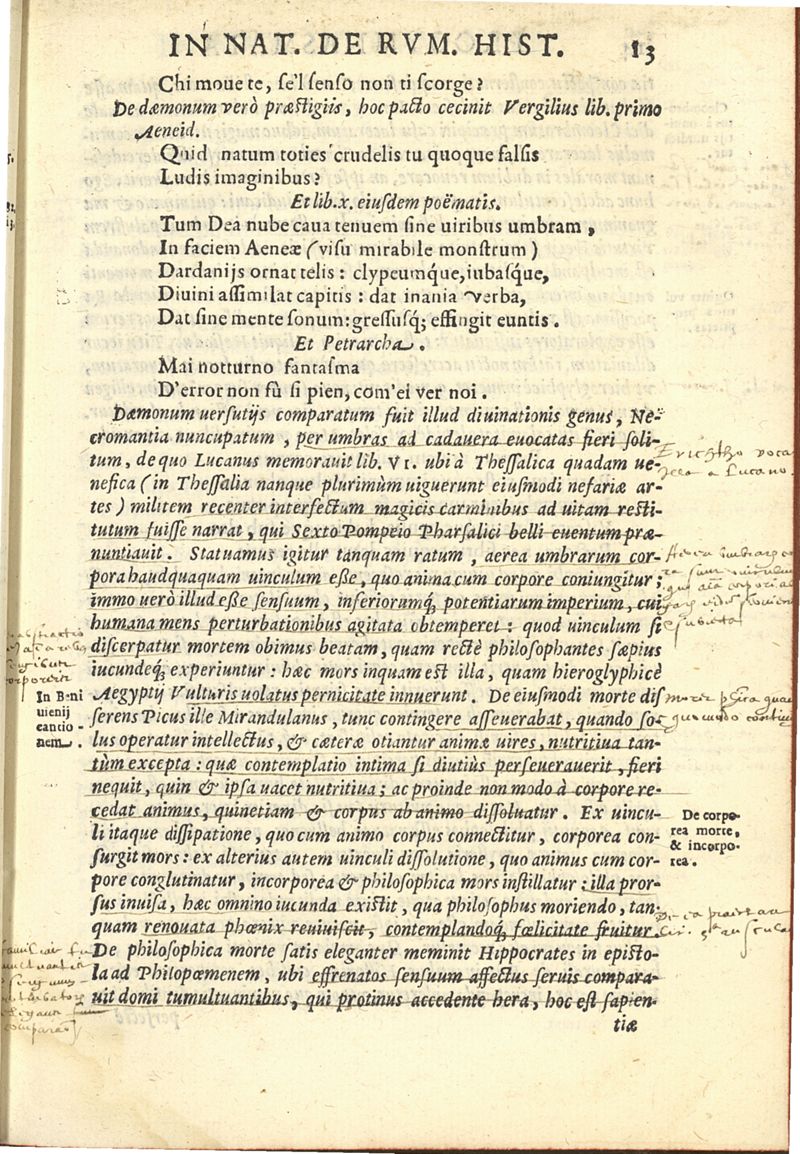 IN NAT. DE RVM. HIST. 13
Chi moue te, se'l senso non ti scorge?
De dæmonum verò præstigiis, hoc pacto cecinit Vergilius lib. primo
Aeneid.
Quid natum toties crudelis tu quoque falsis
Ludis imaginibus?
Et lib. x. eiusdem poëmatis.
Tum Dea nube caua tenuem sine uiribus umbram,
In faciem Aeneæ (visu mirabile monstrum)
Dardanijs ornat telis: clypeumque, iubasque,
Diuini assimilat capitis: dat inania verba,
Dat sine mente sonum: gressusq; effingit euntis.
Et Petrarcha.
Mai notturno fantasma
D'error non fù si pien, com'ei ver noi.
Dæmonum uersutijs comparatum fuit illud diuinationis genus, Ne-
cromantia nuncupatum, per umbras ad cadauera euocatas fieri soli-
tum, de quo Lucanus memorauit lib. VI. ubi à Thessalica quadam ue-
nefica (in Thessalia nanque plurimùm uiguerunt eiusmodi nefariæ ar-
tes) militem recenter interfectum magicis carminibus ad uitam resti-
tutum fuisse narrat, qui Sexto Pompeio Pharsalici belli euentum præ-
nuntiauit. Statuamus igitur tanquam ratum, aerea umbrarum cor-
pora haudquaquam uinculum esse, quo anima cum corpore coniungitur;
immo uerò illud esse sensuum, inferiorumq; potentiarum imperium, cui
humana mens perturbationibus agitata obtemperet: quod uinculum si
discerpatur mortem obimus beatam, quam rectè philosophantes sæpius
iucundeq; experiuntur: hæc mors inquam est illa, quam hieroglyphicè
Aegyptij Vulturis uolatus pernicitate innuerunt. De eiusmodi morte dis
serens Picus ille Mirandulanus, tunc contingere asseuerabat, quando so-
lus operatur intellectus, & cæteræ otiantur animæ uires, nutritiua tan-
tùm excepta: quæ contemplatio intima si diutiùs perseuerauerit, fieri
nequit, quin & ipsa uacet nutritiua; ac proinde non modò à corpore re-
cedat animus, quinetiam & corpus ab animo dissoluatur. Ex uincu-
li itaque dissipatione, quo cum animo corpus connectitur, corporea con-
surgit mors: ex alterius autem uinculi dissolutione, quo animus cum cor-
pore conglutinatur, incorporea & philosophica mors instillatur: illa pror-
sus inuisa, hæc omnino iucunda existit, qua philosophus moriendo, tan-
quam renouata phœnix reuiuiscit, contemplandoq; fœlicitate fruitur.
De philosophica morte satis eleganter meminit Hippocrates in episto-
la ad Philopœmenem, ubi effrenatos sensuum affectus seruis compara-
uit domi tumultuantibus, qui protinus accedente hera, hoc est sapien-
tiæ
In Beni
uienij
cantio-
nem.
De corpo-
rea morte,
& incorpo-
rea.
a Lucano